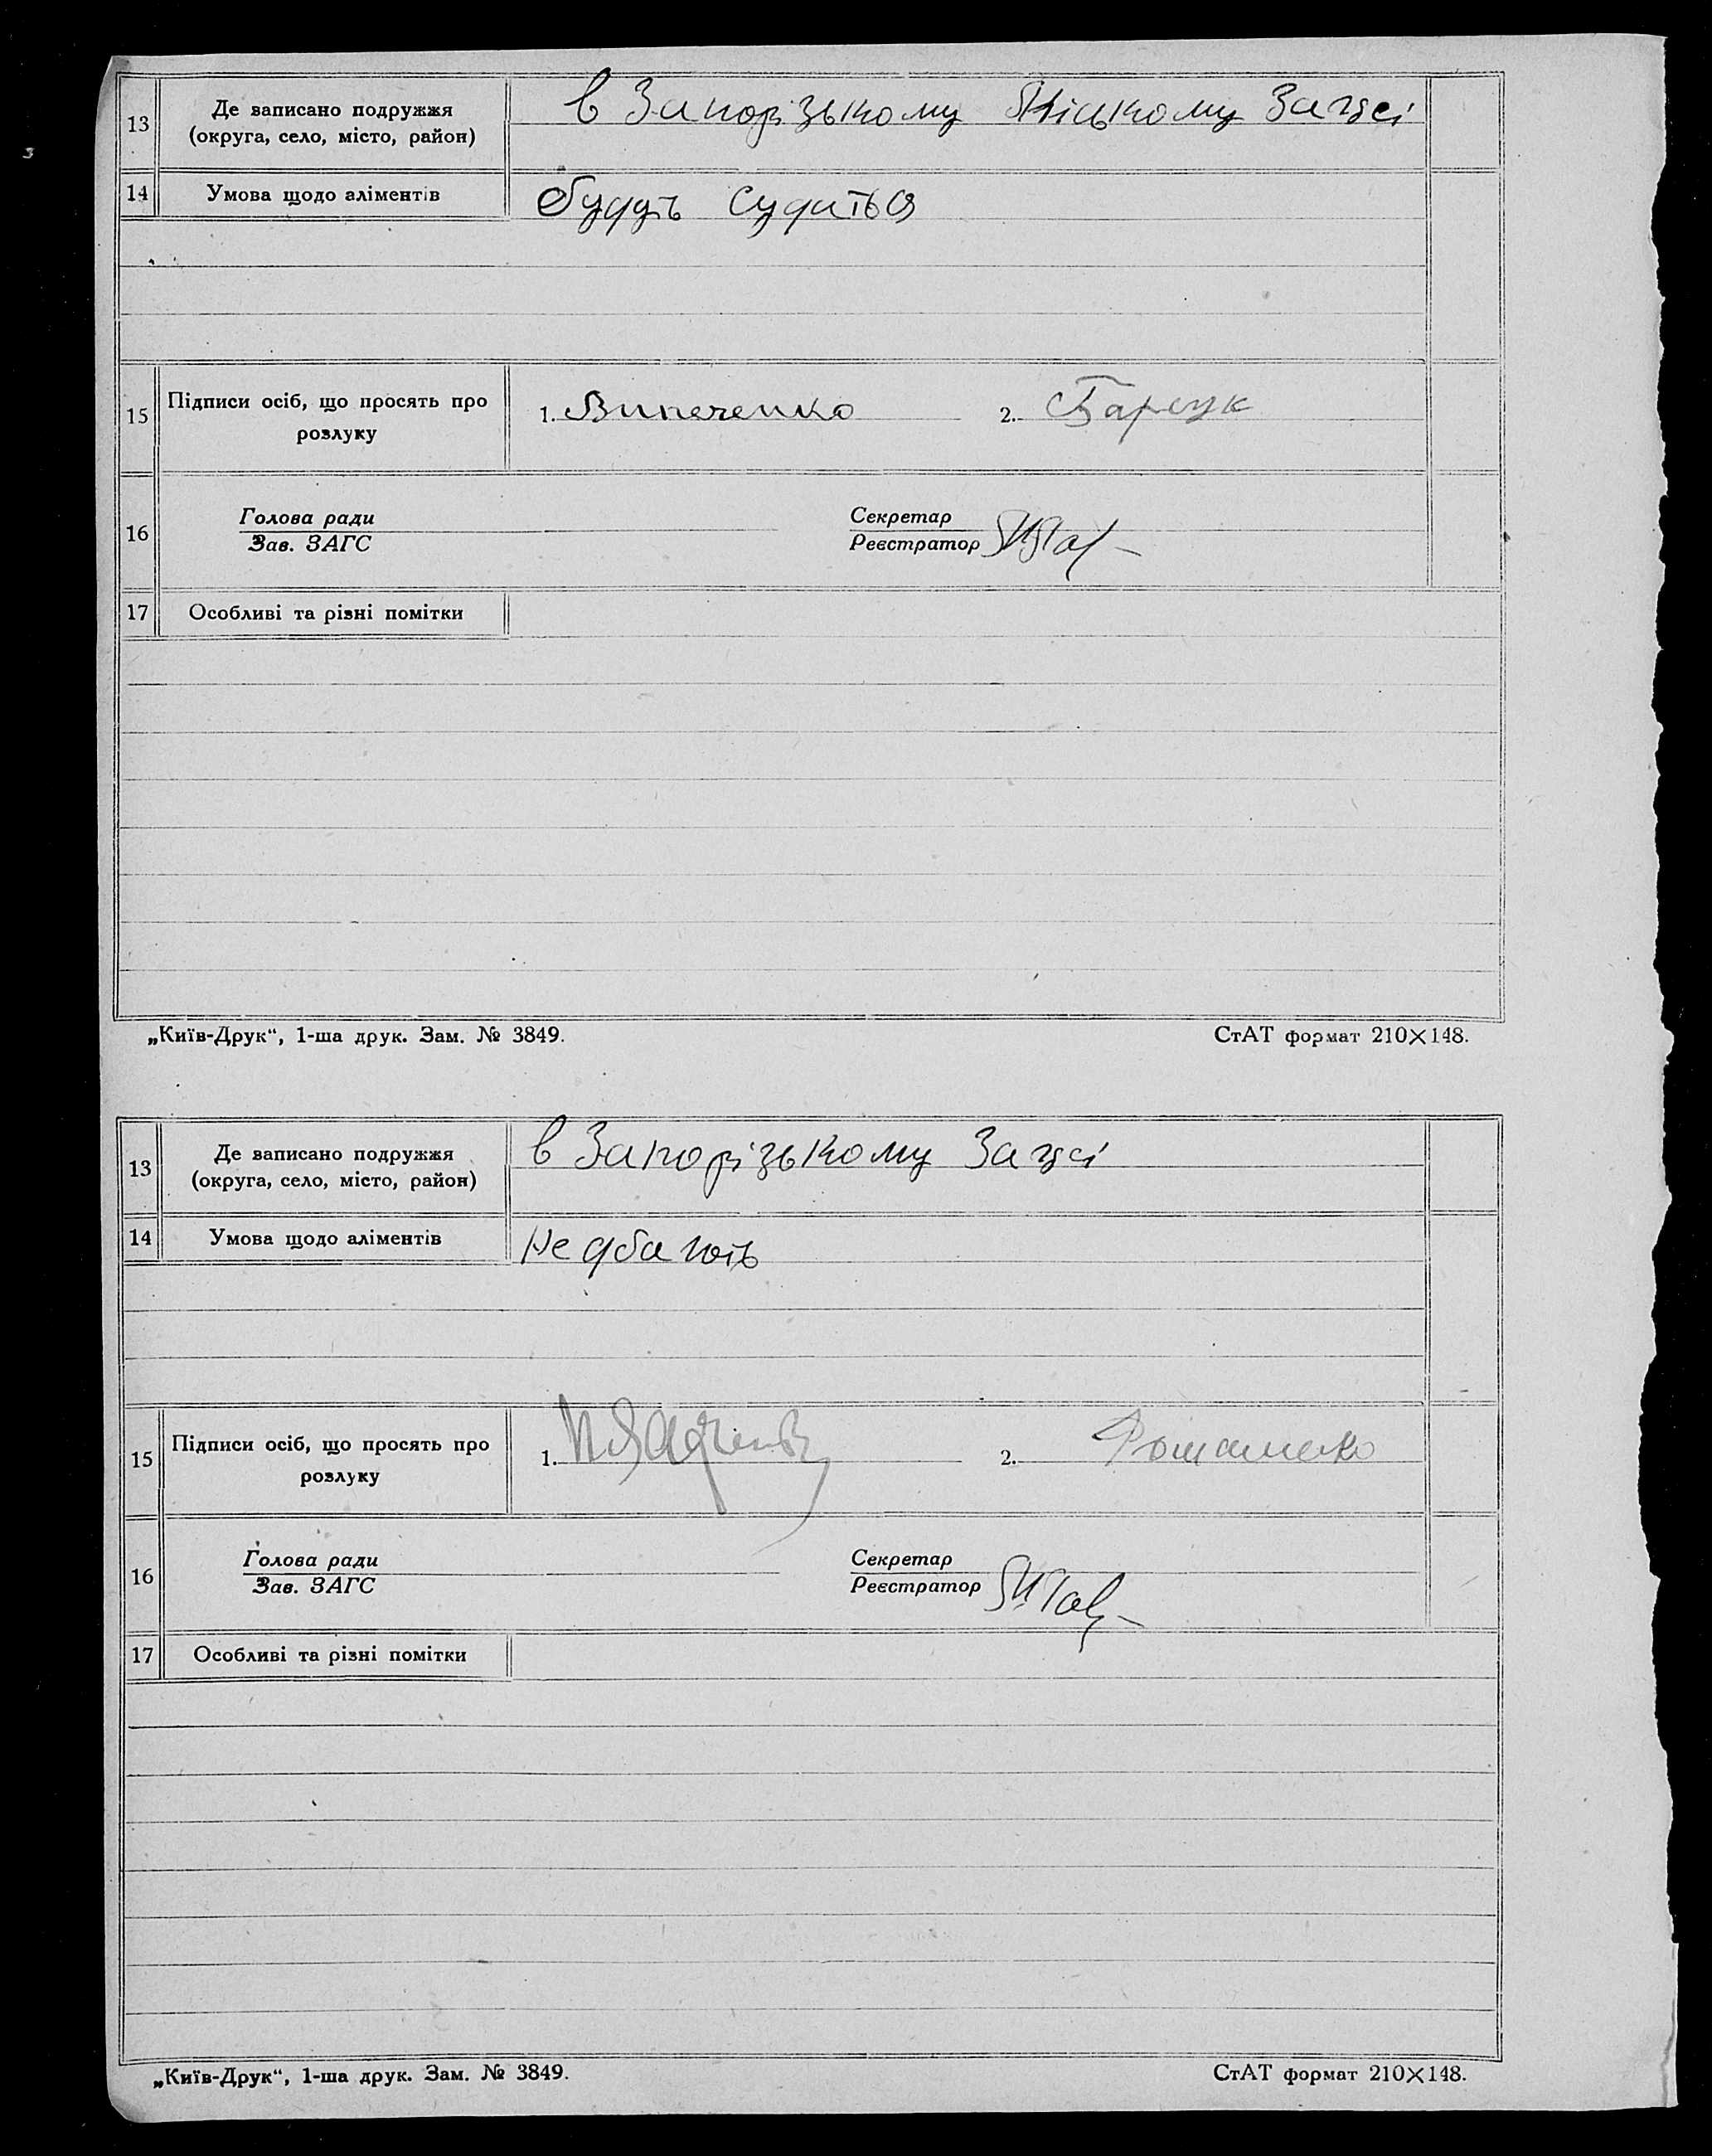 13
Де записано подружжя
(округа, село, місто, район)
в Запорізькому Міському Загсі
14
Умова щодо аліментів
будуть судаться
15
Підписи осіб, що просять про
розлуку
1. Випеченко
2. Барсук
16
Голова ради
Зав. ЗАГС
Секретар
Реєстратор
17
Особливі та різні помітки
„Київ-Друк“, 1-ша друк. Зам. № 3849.
СтАТ формат 210×148.
13
Де записано подружжя
(округа, село, місто, район)
в Запорізькому Загсі
14
Умова щодо аліментів
не дбають
15
Підписи осіб, що просять про
розлуку
1.
2. Романенко
16
Голова ради
Зав. ЗАГС
Секретар
Реєстратор
17
Особливі та різні помітки
„Київ-Друк“, 1-ша друк. Зам. № 3849.
СтАТ формат 210×148.